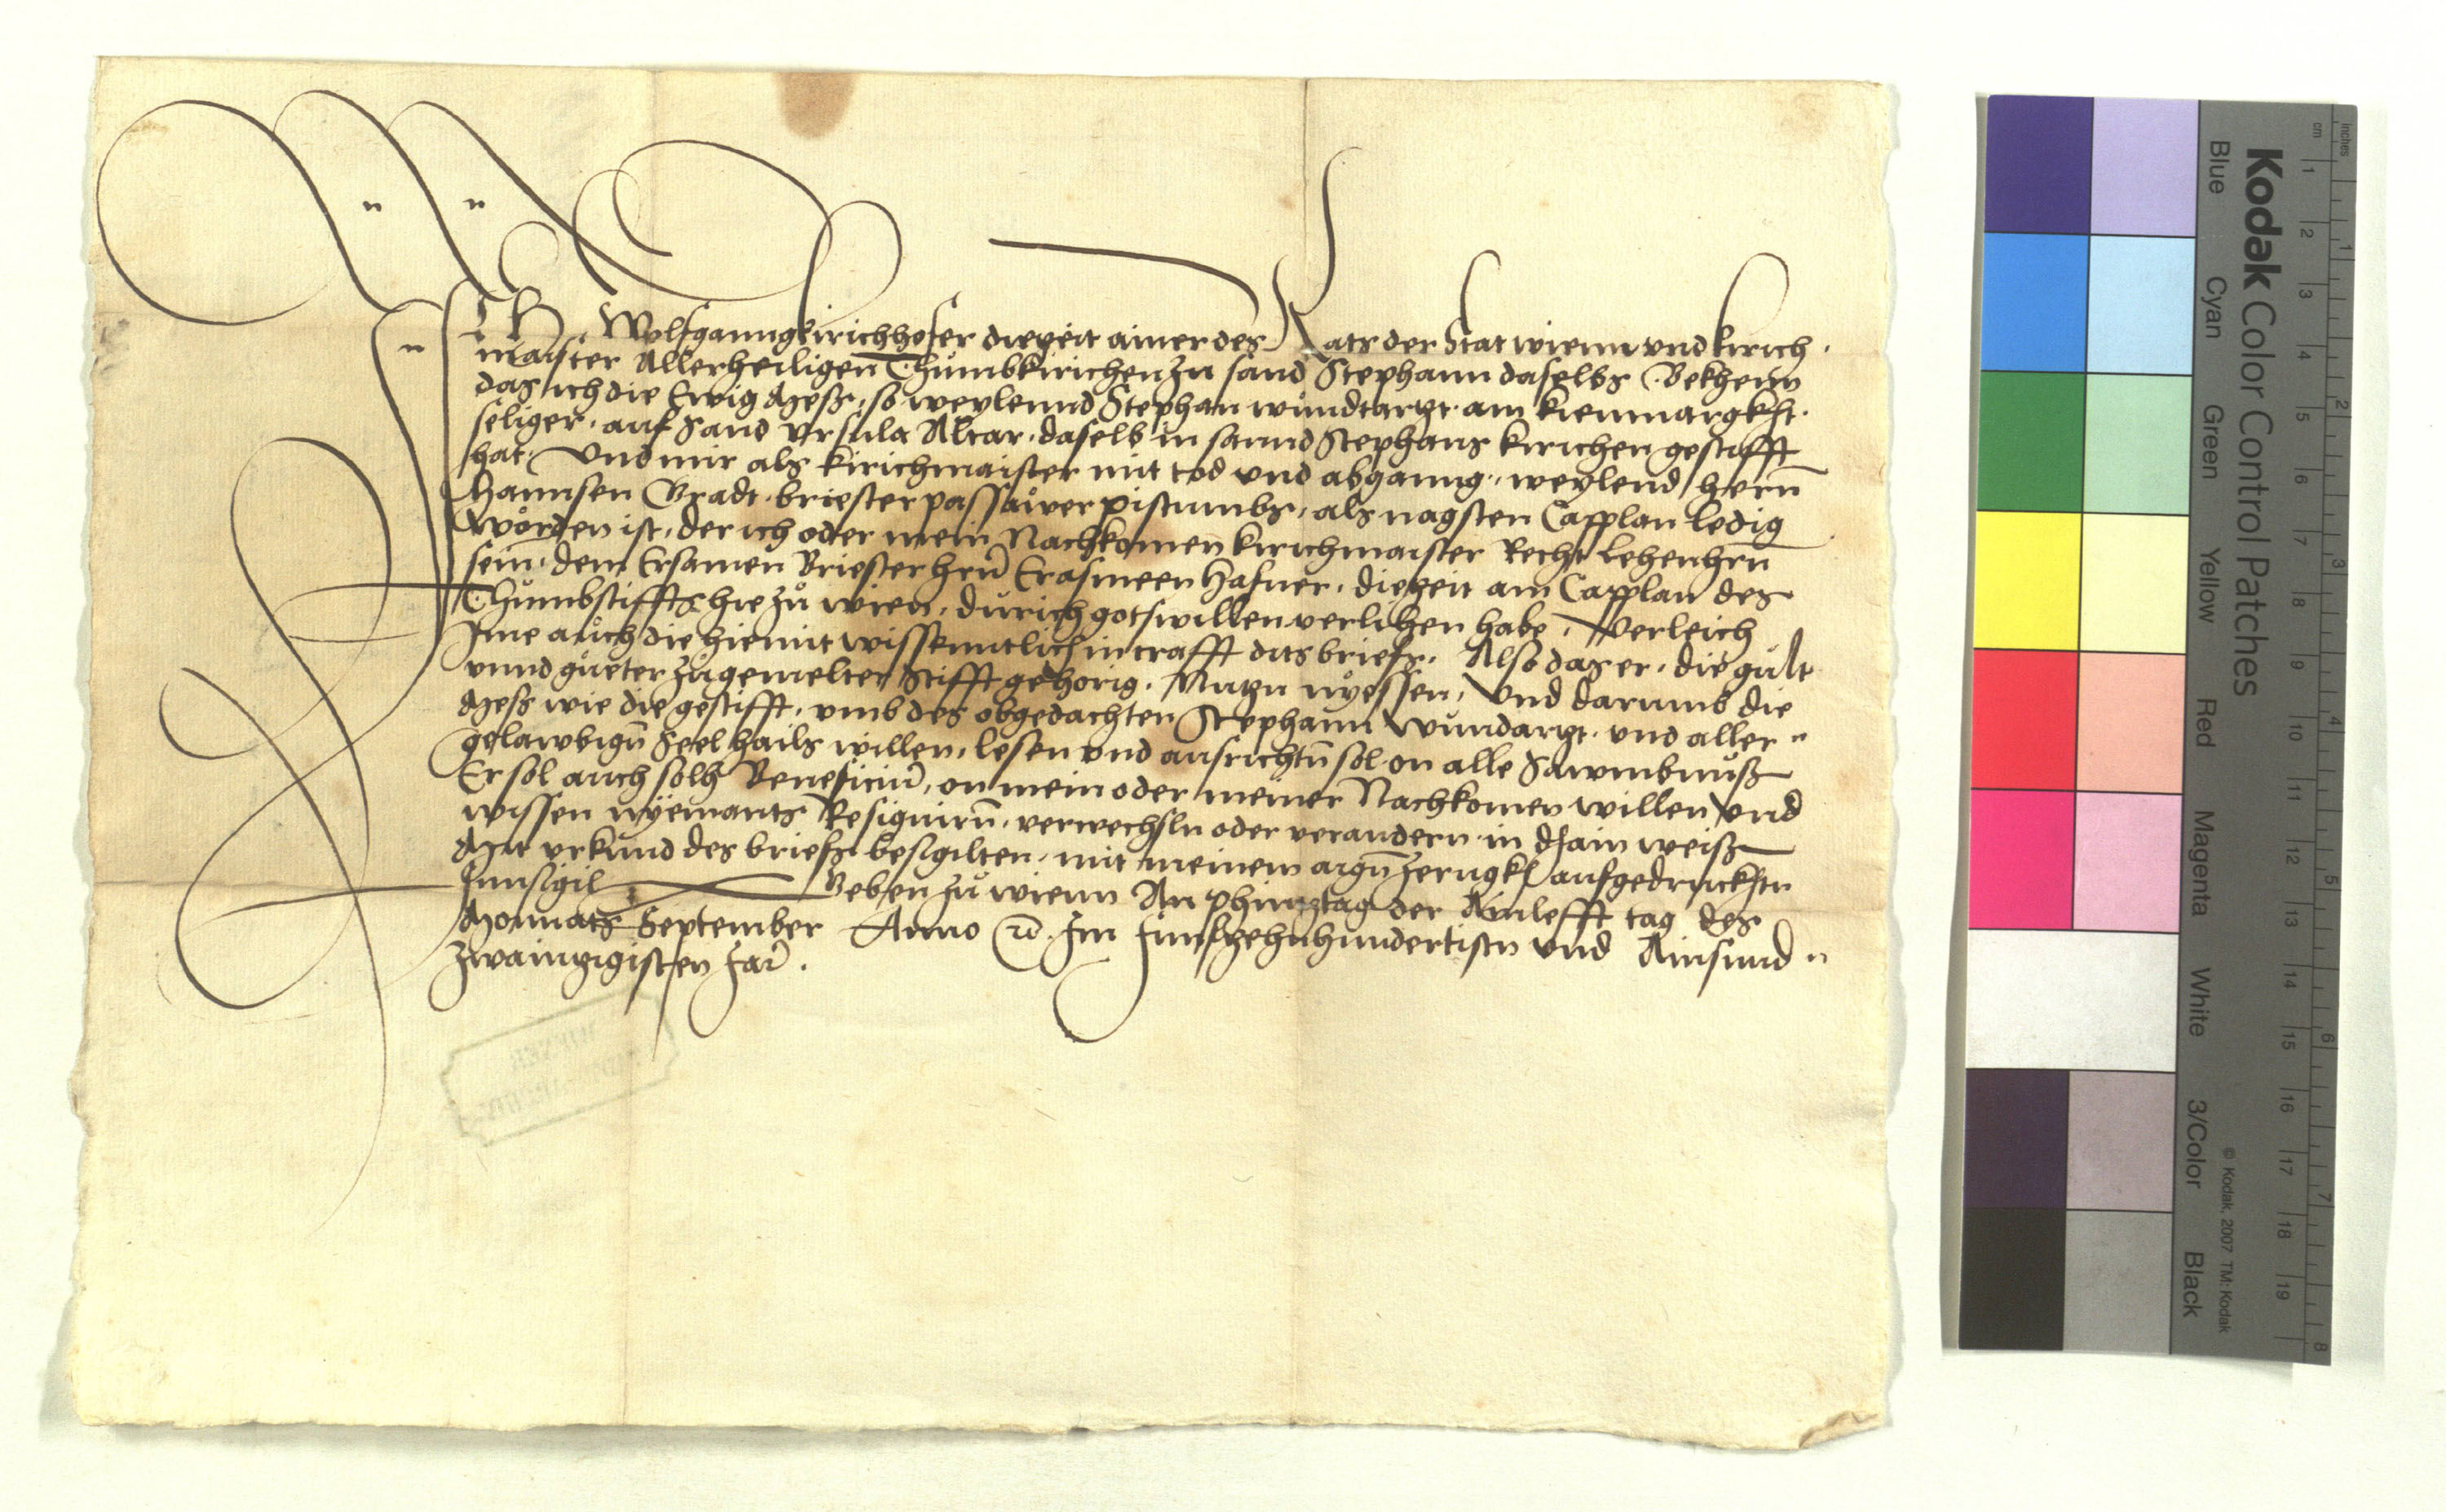 Ich Wolfganng kirichhofer diezeit ainer des Rats der Stat wienn vnd kirich
maister Allerheiligen Thumbkirichen zu sand Stephann daselbs Bekhenn
das ich die Ewig Mess, so weylennd Stephan wundtartzt am kienmargkht
seliger, auf Sand Vrsula Altar, daselb in sannd Stephans kirichen gestifft
hat, Vnd mir als kirichmaister mit tod vnd abganng, weylend herrn
Hannsen Gradt, briester passawer pistumbs, als nagsten Capplan ledig
worden ist, der ich oder mein Nachkomen kirichmaister Recht lehenhrn
sein, dem Ersamen Briester hern Erasmeen Hafner, diezeit am Capplan des
Thumbstiffts hie zu wien, durich gots willen verlihen habe, Verleich
Ime auch die hiemit wissenntlich in crafft dits briefs, Also das er, die gult
vnnd gueter zu gemelter Stifft gehorig, Nutzn nyessen, Vnd darumb die
Mess wie die gestifft, vmb des obgedachten Stephann Wundartzt, vnd aller
gelawbign Seel hails willen, lesen vnd ausrichtn sol on alle Sawmbnuss
Er sol auch solh Beneficium, on mein oder meiner Nachkomen willen vnd
wissen nyemants Resignirn, verwechsln oder verandern in dhain weiss
Mit vrkund des briefs besigilten, mit meinem aign zerugkh aufgedruckhtn
Innsigil Geben zu wienn An phinztag der Ainlefft tag des
Monnats September Anno etc. Im funfzehnhundertistn vnd Ainsund
zwainzigisten Jar.
Kodak Color Control Patches
Blue Cyan Green Yellow Red Magenta White 3/Color Black
© Kodak, 2007 TM: Kodak
inches 1 2 3 4 5 6 7 8
cm 1 2 3 4 5 6 7 8 9 10 11 12 13 14 15 16 17 18 19